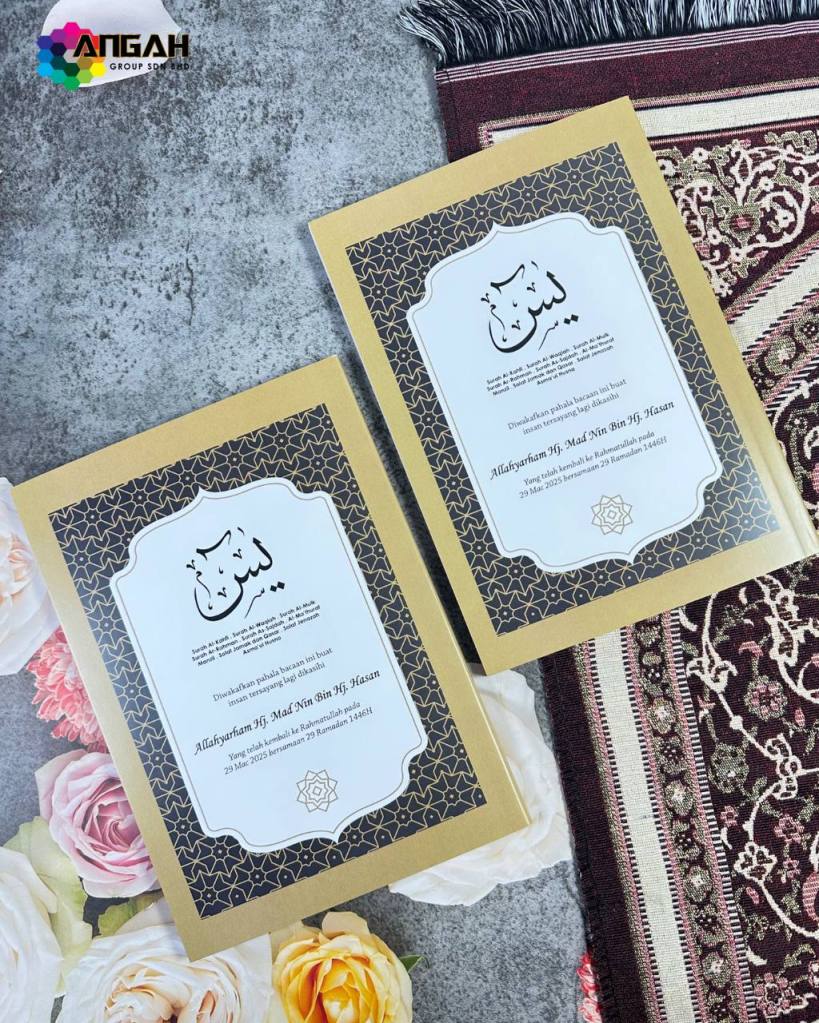 ANGAH
GROUP SDN BHD
يس
Surah Al-Kahfi . Surah Al-Waqiah . Surah Al-Mulk
Surah Ar-Rahman . Surah As-Sajdah . Al-Ma'thurat
Manzil . Solat Jamak dan Qasar . Solat Jenazah
Asma'ul Husna
Diwakafkan pahala bacaan ini buat
insan tersayang lagi dikasihi
Allahyarham Hj. Mad Nin Bin Hj. Hasan
Yang telah kembali ke Rahmatullah pada
29 Mac 2025 bersamaan 29 Ramadan 1446H
يس
Surah Al-Kahfi . Surah Al-Waqiah . Surah Al-Mulk
Surah Ar-Rahman . Surah As-Sajdah . Al-Ma'thurat
Manzil . Solat Jamak dan Qasar . Solat Jenazah
Asma'ul Husna
Diwakafkan pahala bacaan ini buat
insan tersayang lagi dikasihi
Allahyarham Hj. Mad Nin Bin Hj. Hasan
Yang telah kembali ke Rahmatullah pada
29 Mac 2025 bersamaan 29 Ramadan 1446H